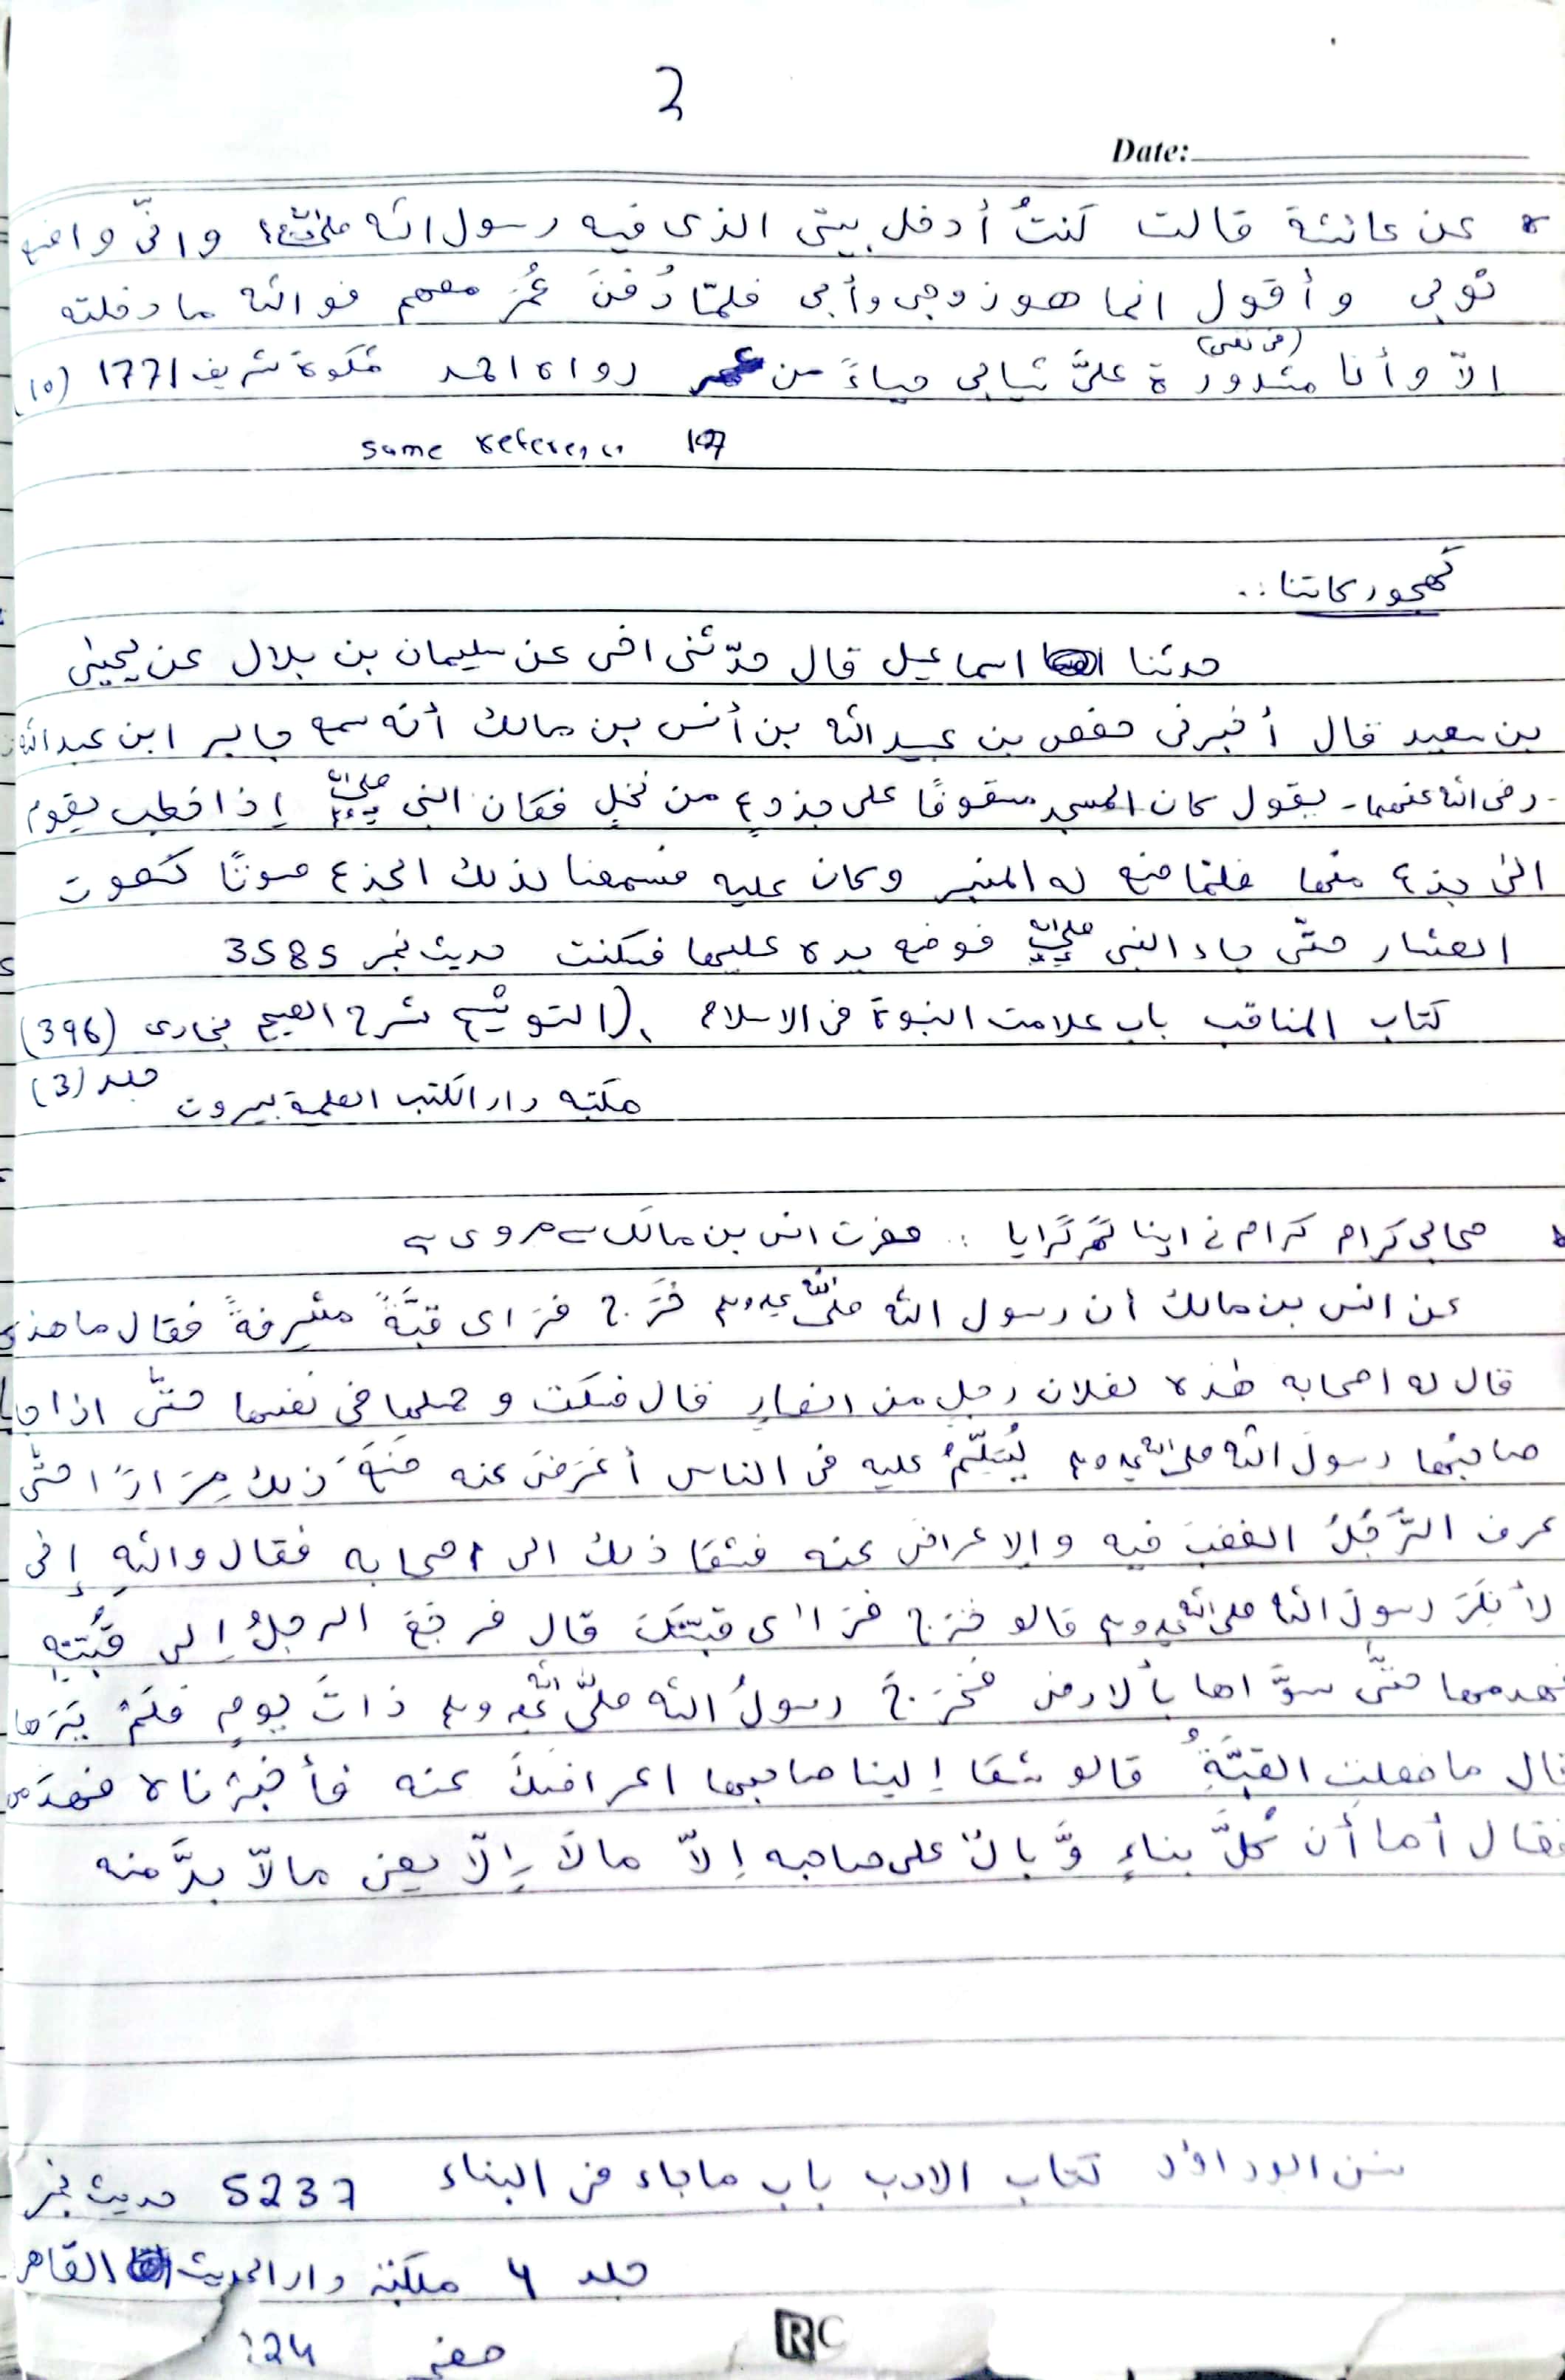 2
Date:
* عن عائشة قالت كنتُ أدخل بيتى الذى فيه رسول الله ﷺ وانّى واضع
ثوبى وأقول انما هو زوجى وأبى فلمّا دُفنَ عُمَرُ معهم فوالله ما دخلته
الاّ وأنا مشدودة علىَّ ثيابى حياءً من عمر رواه احمد مشكوة شريف 1771 (10)
same reference
كھجور كا تنا :.
حدثنا اسماعيل قال حدّثنى اخى عن سليمان بن بلال عن يحيىٰ
بن سعيد قال أخبرنى حفص بن عبيد الله بن أنس بن مالك أنه سمع جابر ابن عبدالله
- رضى الله عنهما - يقول كان المسجد مسقوفًا على جذوعٍ من نخلٍ فكان النبى ﷺ إذا خطب يقوم
الىٰ جذع منها فلمّا صنع له المنبر وكان عليه فسمعنا لذلك الجذع صوتًا كصوت
العشار حتّى جاء النبى ﷺ فوضع يده عليها فسكنت حديث نمبر 3585
كتاب المناقب باب علامت النبوة فى الاسلام ، (التوشيح شرح الصيح بخارى (396)
جلد (3)
مكتبه دار الكتب العلمية بيروت
* صحابى كرام كرام نے اپنا گھر گرايا :. حضرت انس بن مالک سے مروى ہے
عن انس بن مالك أن رسول الله صلىّ الله عليه وسلم خَرَج فرَاى قبّةً مشرِفةً فقال ما هذه
قال له اصحابه هٰذه لفلان رجلٍ من انصارِ قال فسكت و حملها فى نفسها حتّى اذا جا
صاحبُها رسولَ الله صلى الله عليه وسلم يُسَلّمُ عليه فى الناس أعْرَضَ عنه صَنَعَ ذلك مِرَارًا حتّى
عرف الرَّجُلُ الغضبَ فيه والاعراض عنه فشقا ذلك الى اصحابه فقال واللهِ إنى
لأنكِرَ رسولَ الله صلى الله عليه وسلم قالو خرَج فرَاىٰ قبتَكَ قال فرجَعَ الرجلُ إلى قبّتِهِ
فهدمها حتّى سوَّاها بألارض فخرَجَ رسولُ الله صلىَّ الله عليه وسلم ذاتَ يومٍ فلَمْ يَرَها
قال ما فعلت القبّةُ قالو شقا إلينا صاحبها اعراضكَ عنه فأخبرناه فهدَمها
فقال أما أن كُلَّ بناءٍ وَّبالٌ على صاحبه اِلاّ مالاَ اِلاّ يعنى مالاّ بدَّ منه
سنن ابوداؤد كتاب الادب باب ماجاء فى البناء 5237 حديث نمبر
جلد 4 مكتبہ دار الحديث القاهر
RC